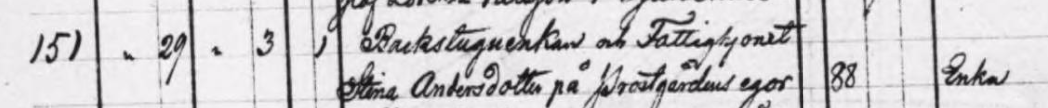 151 " 29 " 3 1 Backstuguenkan och Fattighjonet
Stina Andersdotter på Prostgårdens egor 88 Enka